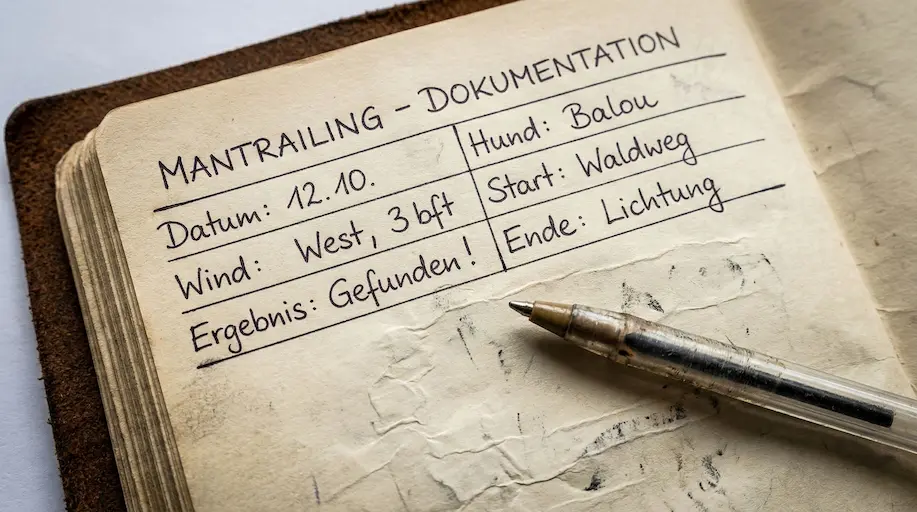 MANTRAILING – DOKUMENTATION
Datum: 12.10. Hund: Balou
Wind: West, 3 bft Start: Waldweg
Ergebnis: Gefunden! Ende: Lichtung